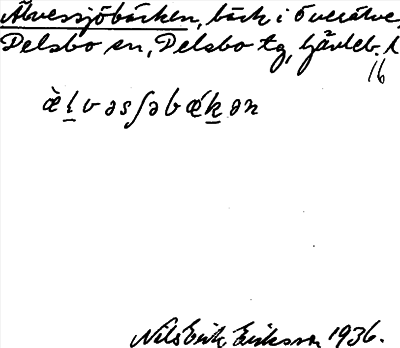 Älvessjöbäcken, bäck i Överälve,
Delsbo sn, Delsbo tg, Gävleb. l
16
æ̀l̠vəsʃəbǽk̠ən
Nils Erik Eriksson 1936.